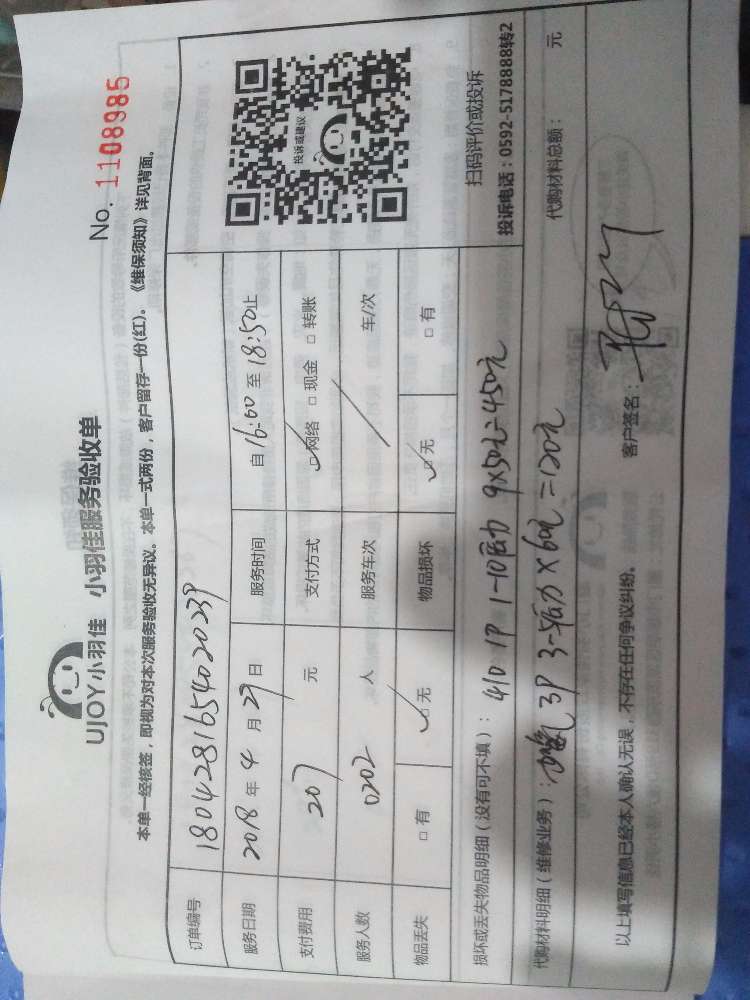 UJOY小羽佳 小羽佳服务验收单
No. 1108985
本单一经核签，即视为对本次服务验收无异议。本单一式两份，客户留存一份(红)。《维保须知》详见背面。
订单编号 180428165402023
服务日期 2018 年 4 月 29 日 服务时间 自 16:00 至 18:50 止
支付费用 207 元 支付方式 ☑网络 □现金 □转账
服务人数 0202 人 服务车次 / 车/次
物品丢失 □有 ☑无 物品损坏 ☑无 □有
投诉或建议
扫码评价或投诉
投诉电话：0592-5178888转2
损坏或丢失物品明细（没有可不填）： 410 1P 1-10 9×50元=450元
代购材料明细（维修业务）： 3P 3- ×60元=120元 代购材料总额： 元
以上填写信息已经本人确认无误，不存在任何争议纠纷。 客户签名：